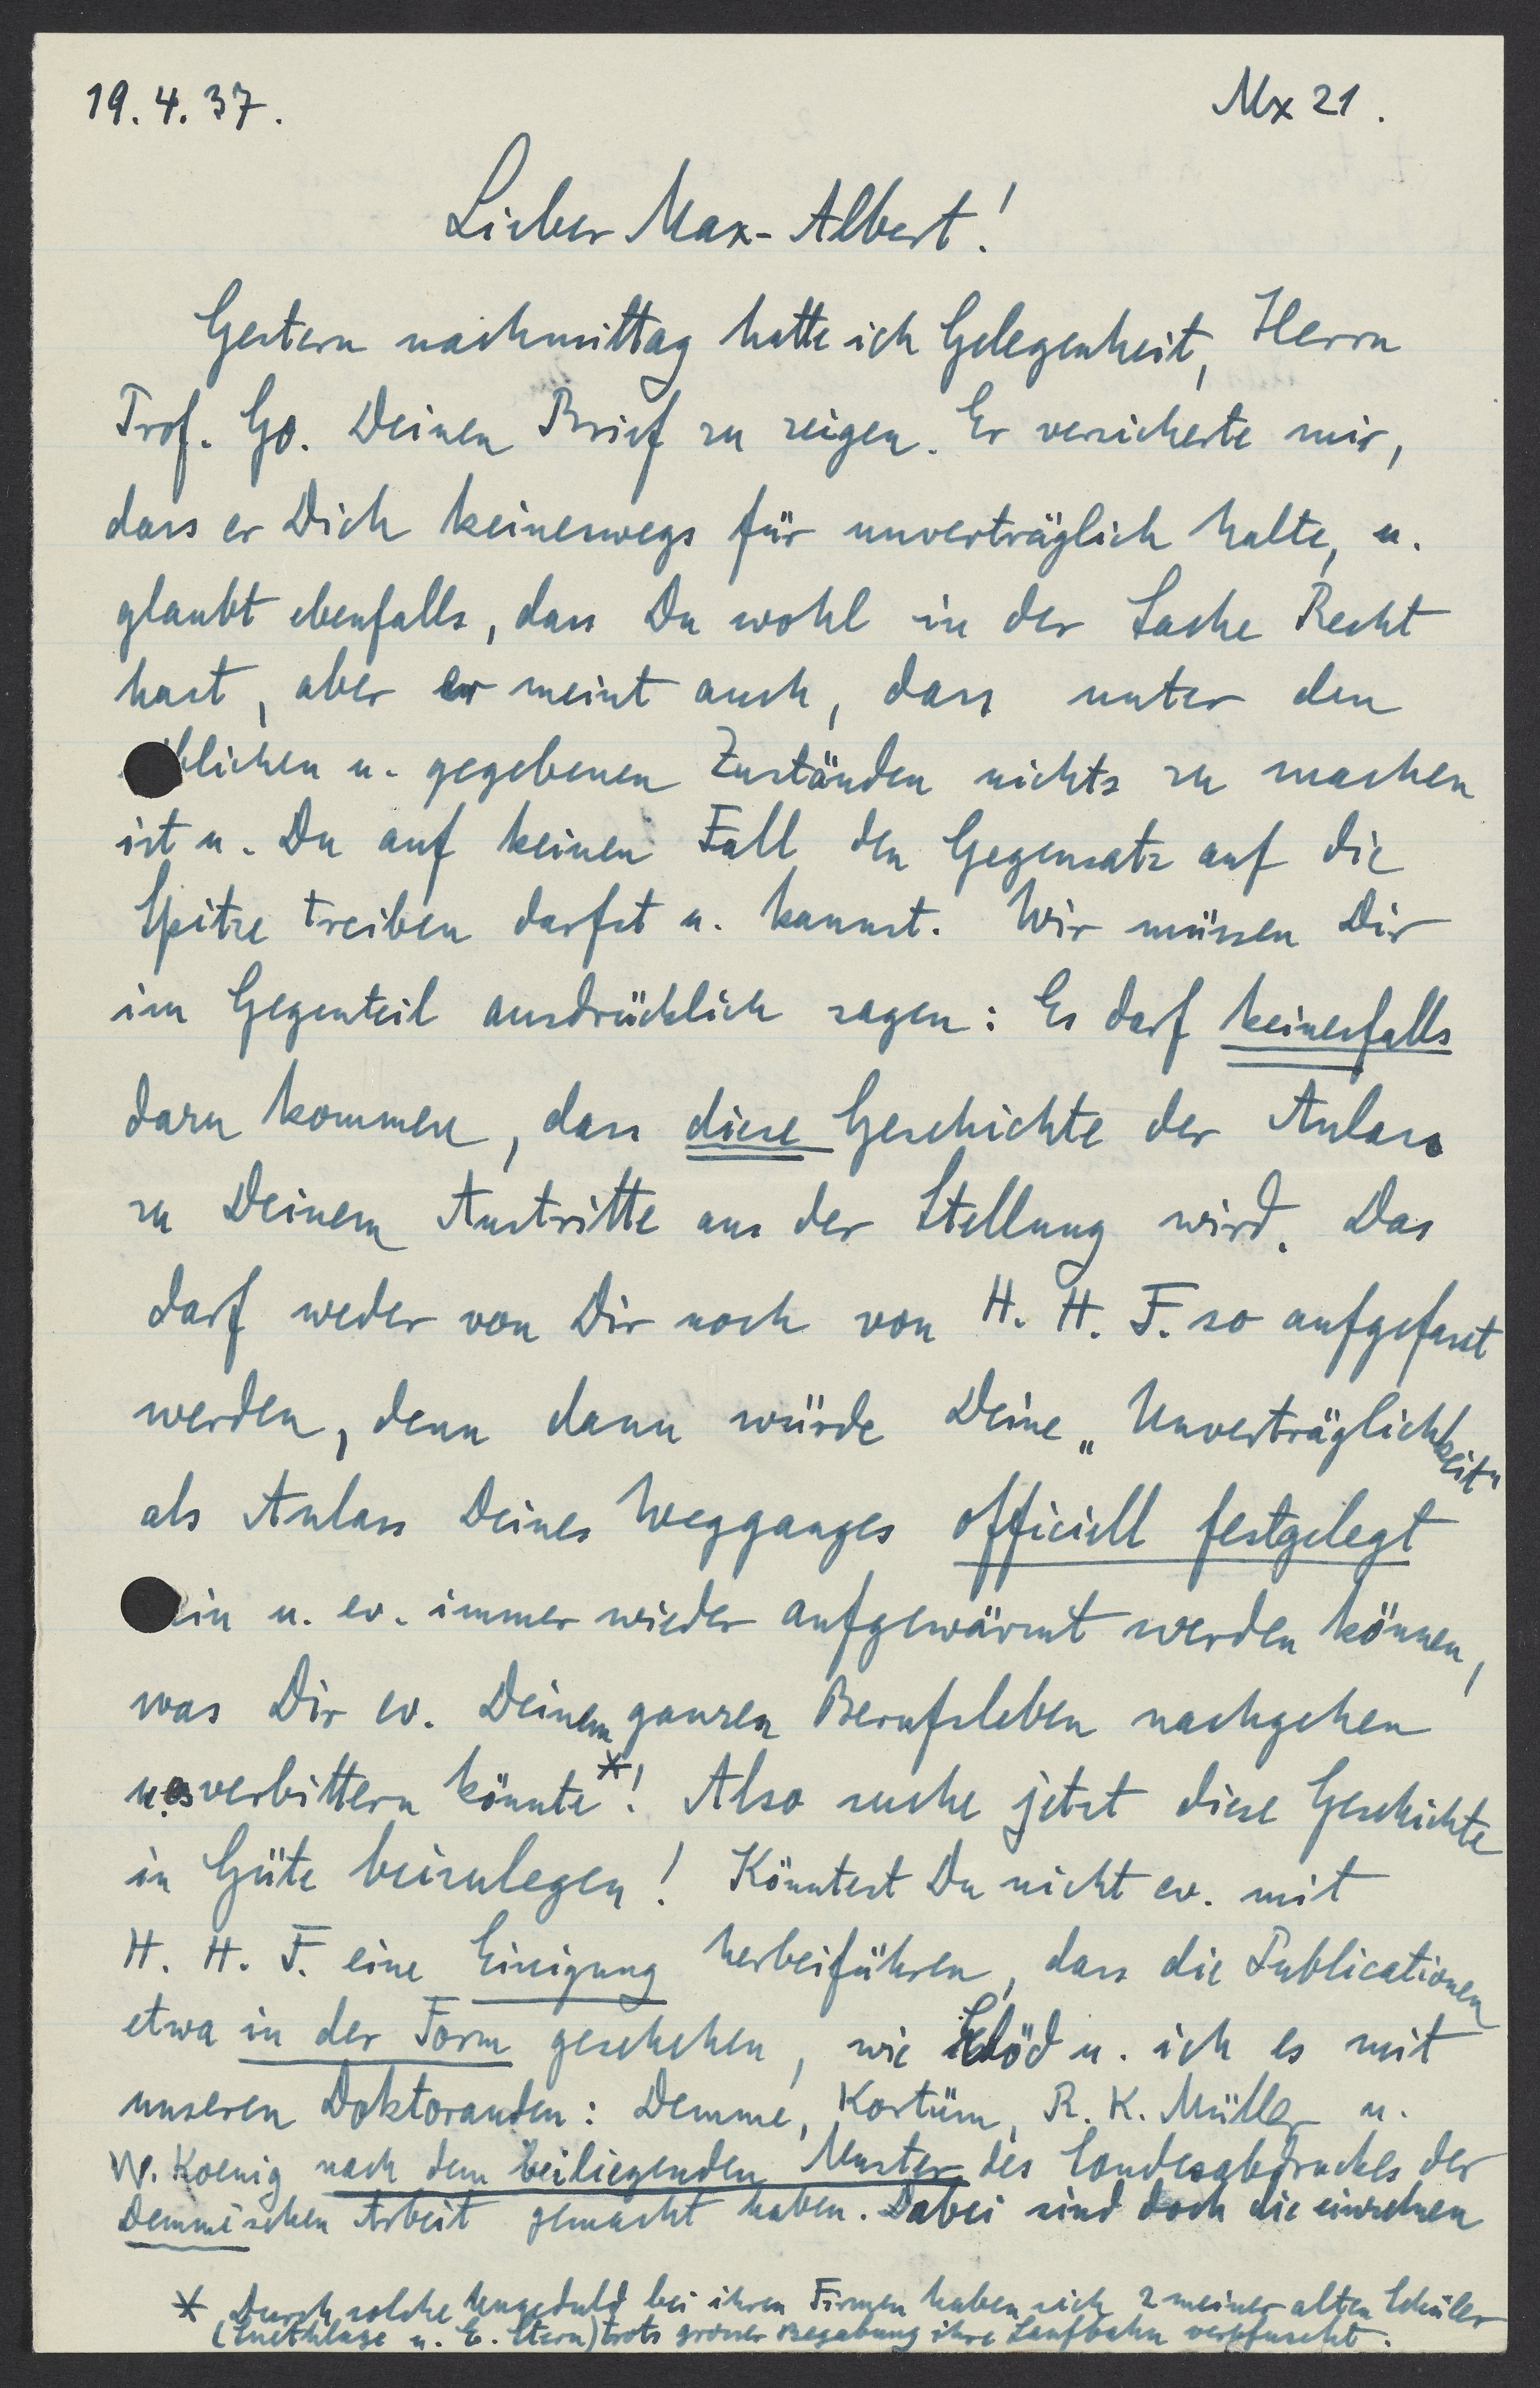 19.4.37.
Mx 21.
Lieber Max-Albert!
Gestern nachmittag hatte ich Gelegenheit, Herrn
Prof. Go. Deinen Brief zu zeigen. Er versicherte mir,
dass er Dich keineswegs für unverträglich halte, u.
glaubt ebenfalls, dass Du wohl in der Sache Recht
hast, aber er meint auch, dass unter den
üblichen u. gegebenen Zuständen nichts zu machen
ist u. Du auf keinen Fall den Gegensatz auf die
Spitze treiben darfst u. kannst. Wir müssen Dir
im Gegenteil ausdrücklich sagen: Es darf keinesfalls
dazu kommen, dass diese Geschichte der Anlass
zu Deinem Austritte aus der Stellung wird. Das
darf weder von Dir noch von H. H. F. so aufgefasst
werden, denn dann würde Deine „Unverträglichkeit“
als Anlass Deines Wegganges officiell festgelegt
sein u. ev. immer wieder aufgewärmt werden können,
was Dir ev. Deinem ganzen Berufsleben nachgehen
u. es verbittern könnte*! Also suche jetzt diese Geschichte
in Güte beizulegen! Könntest Du nicht ev. mit
H. H. F. eine Einigung herbeiführen, dass die Publicationen
etwa in der Form geschehen, wie u. ich es mit
unseren Doktoranden: Demme, Kortüm, R. K. Müller u.
W. Koenig nach dem beiliegenden Muster des Sonderabdruckes der
Demmeschen Arbeit gemacht haben. Dabei sind doch die einzelnen
* Durch solche Ungeduld bei ihren Firmen haben sich 2 meiner alten Schüler
( u. E. Stern) trots grosser Begabung ihre Laufbahn verpfuscht.